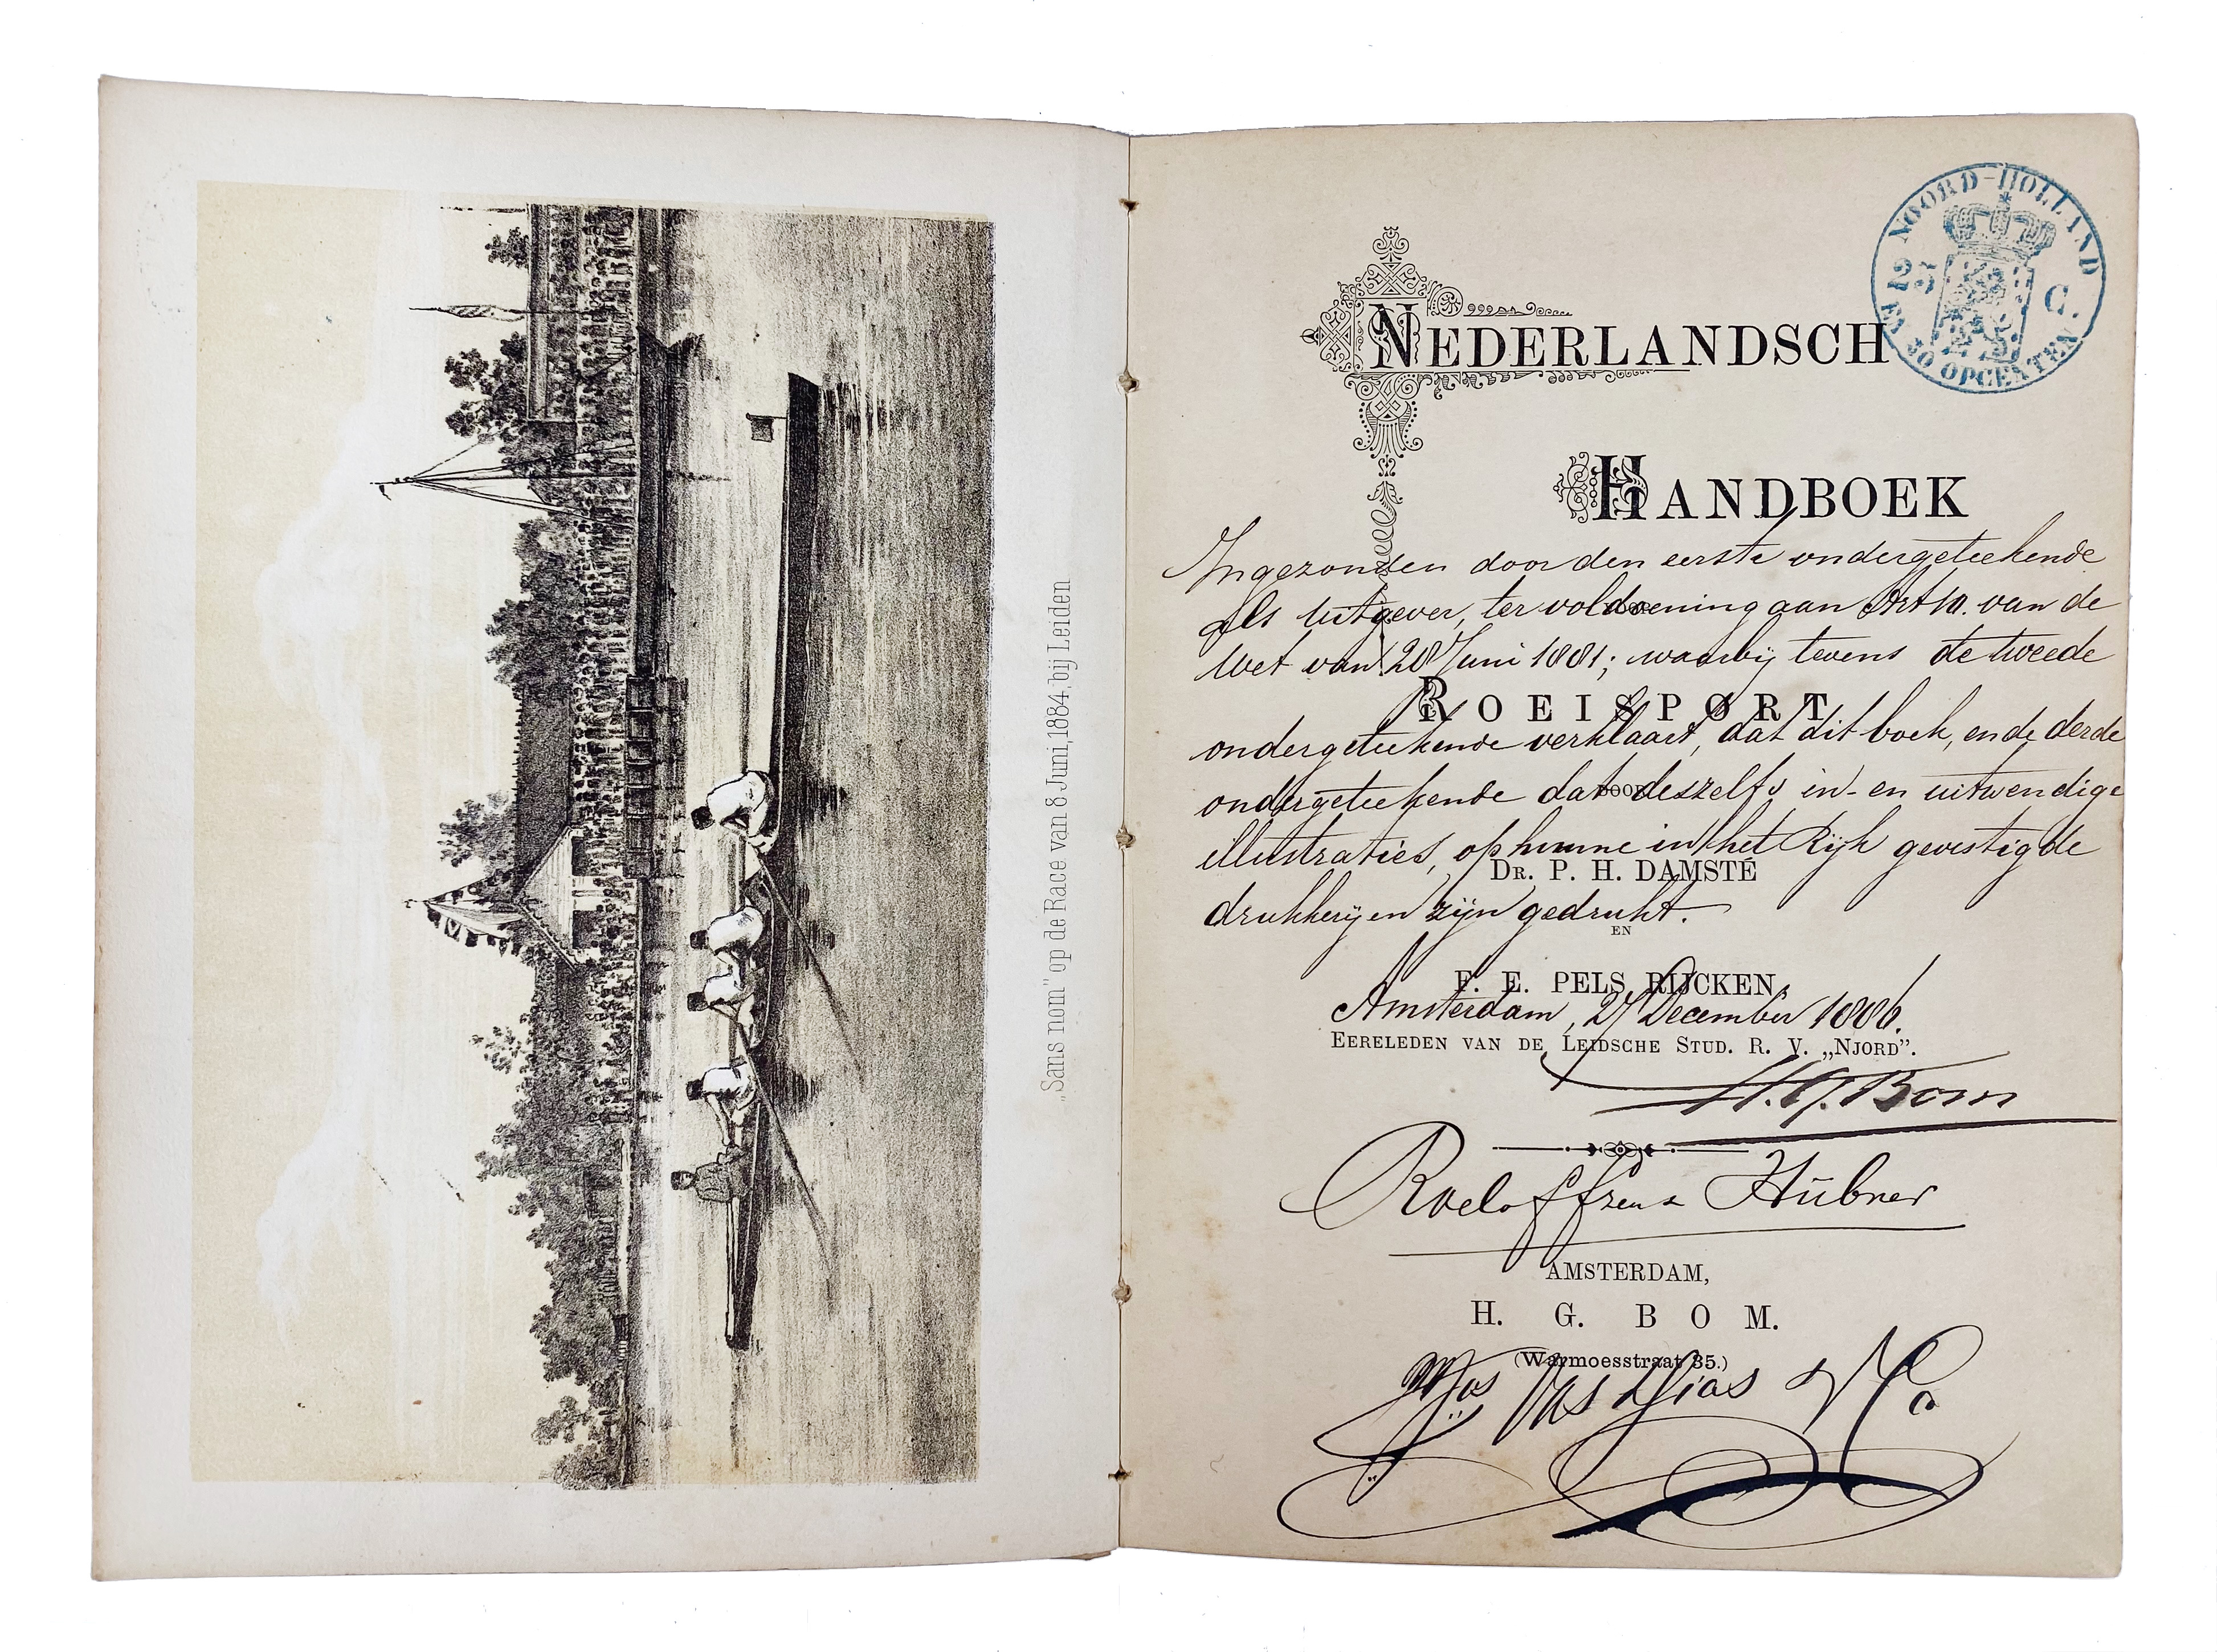 „Sans nom" op de Race van 8 Juni, 1884, bij Leiden
NOORD-HOLLAND
22½ C.
EN 30 OPCENTEN
NEDERLANDSCH
HANDBOEK
Ingezonden door den eerste ondergeteekende
als uitgever, ter voldoening aan Art 10. van de
Wet van 28 Juni 1881; waarbij tevens de tweede
ROEISPORT
ondergeteekende verklaart, dat dit boek, en de derde
ondergeteekende dat deszelfs in- en uitwendige
DOOR
illustraties, op hunne in het Rijk gevestigde
DR. P. H. DAMSTÉ
drukkerijen zijn gedrukt.
EN
F. E. PELS RIJCKEN,
Amsterdam, 27 December 1886.
EERELEDEN VAN DE LEIDSCHE STUD. R. V. „NJORD”.
H. G. Bom
Roeloffzen & Hübner
AMSTERDAM,
H. G. BOM.
(Warmoesstraat 35.)
Jos Vas Dias & Co